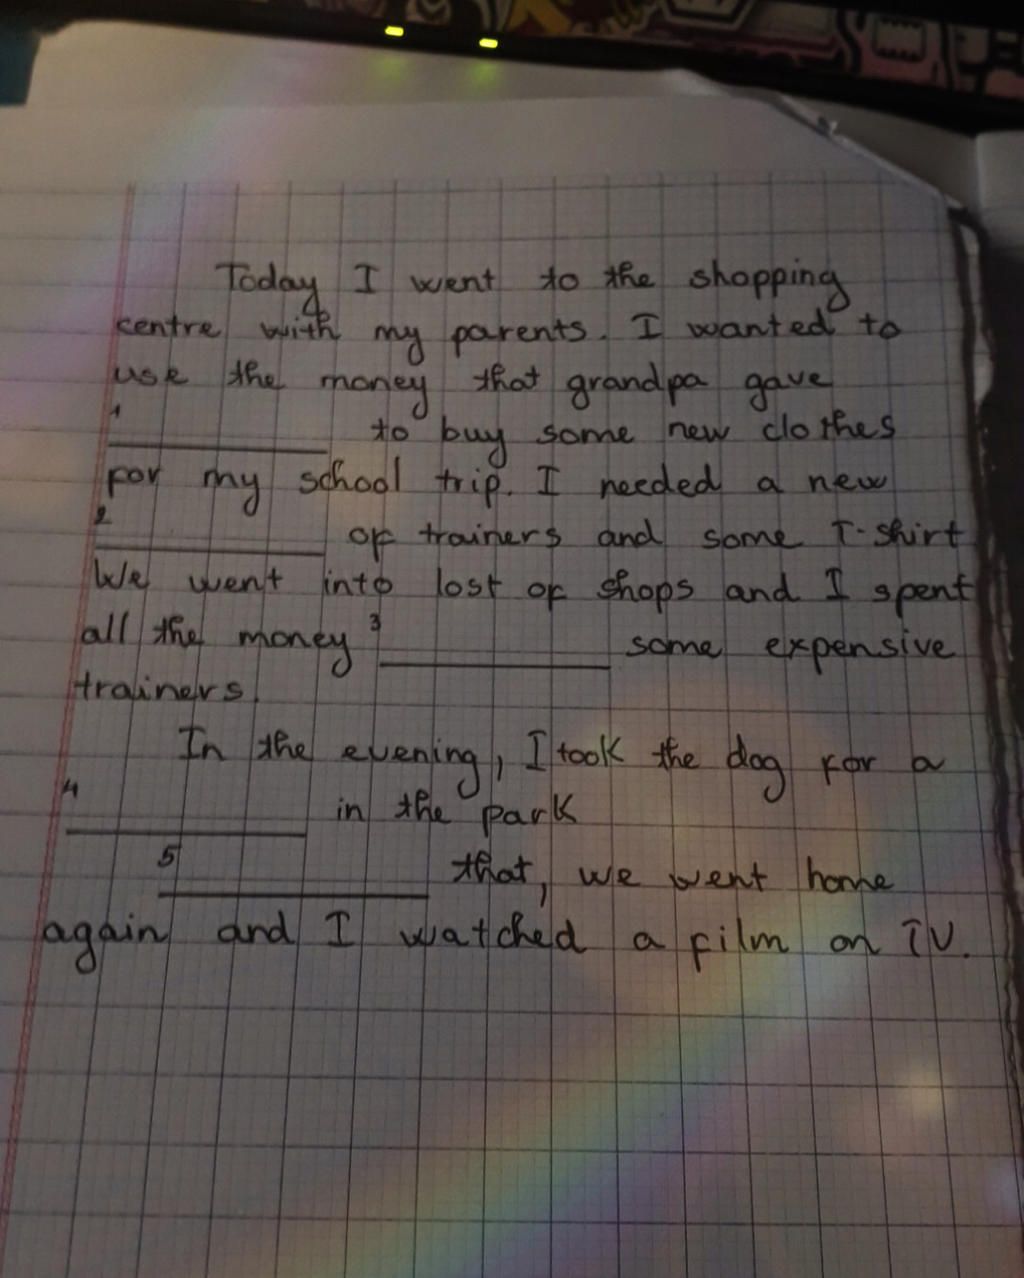 Today I went to the shopping
centre with my parents. I wanted to
use the money that grandpa gave
1 __________ to buy some new clothes
for my school trip. I needed a new
2 __________ of trainers and some T-shirt
We went into lost of shops and I spent
all the money 3 __________ some expensive
trainers.
In the evening, I took the dog for a
4 __________ in the park
5 __________ that, we went home
again and I watched a film on TV.